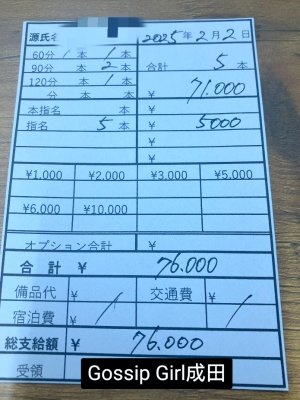 源氏名
2025年2月2日
60分 1本 1本
90分 本 2本
合計 5本
120分 本 1本
¥ 71,000
分 本 本
¥
本指名 本
¥
指名 5本
¥ 5000
¥
¥
¥1,000 ¥2,000 ¥3,000 ¥5,000
¥6,000 ¥10,000
オプション合計 ¥
合計 ¥ 76,000
備品代 ¥ / 交通費 ¥ /
宿泊費 ¥ /
総支給額 ¥ 76,000
受領
Gossip Girl成田